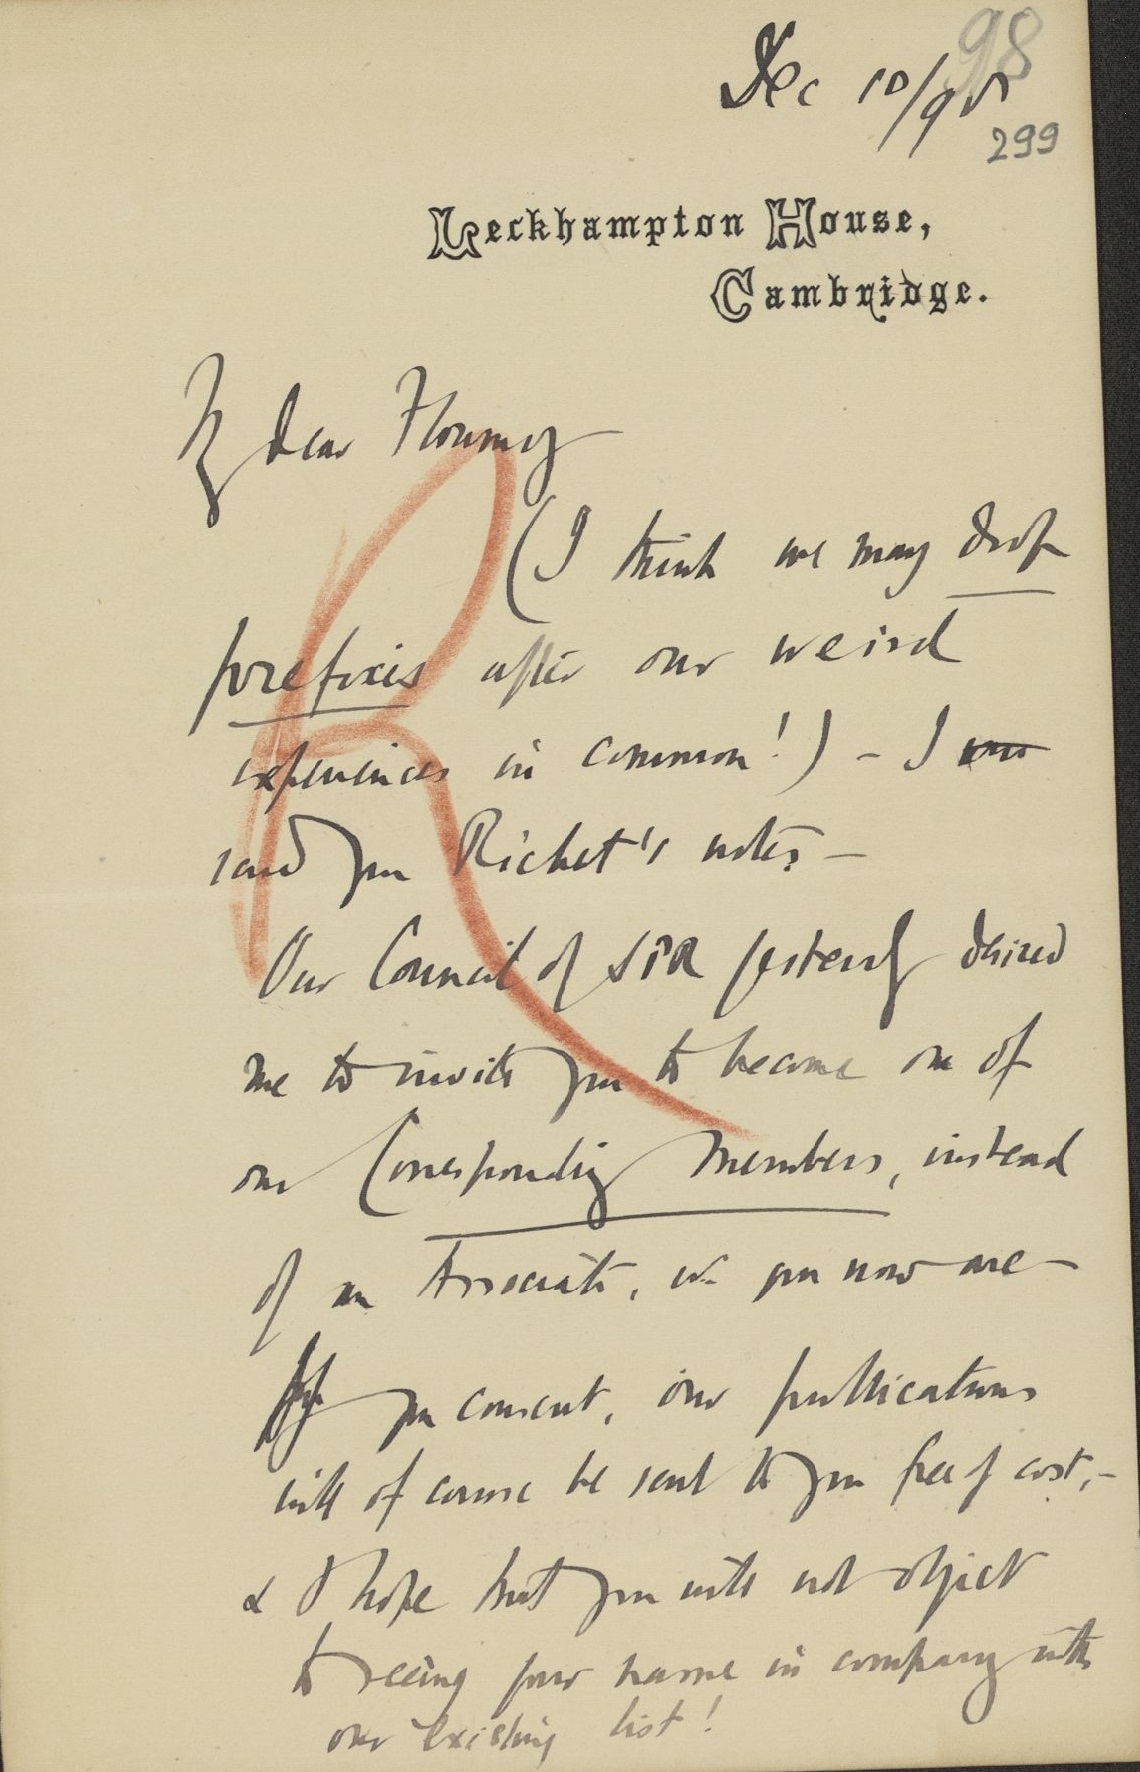 98
Dec 10/98
299
Leckhampton House,
Cambridge.
My dear Flournoy
(I think we may drop
prefixes after our weird
experiences in common!) – I now
send you Richet's notes –
Our Council of SPR yesterday desired
me to invite you to become one of
our Corresponding Members, instead
of an Associate, as you now are –
If you consent, our publications
will of course be sent to you free of cost, –
& I hope that you will not object
to seeing your name in company with
our existing list!